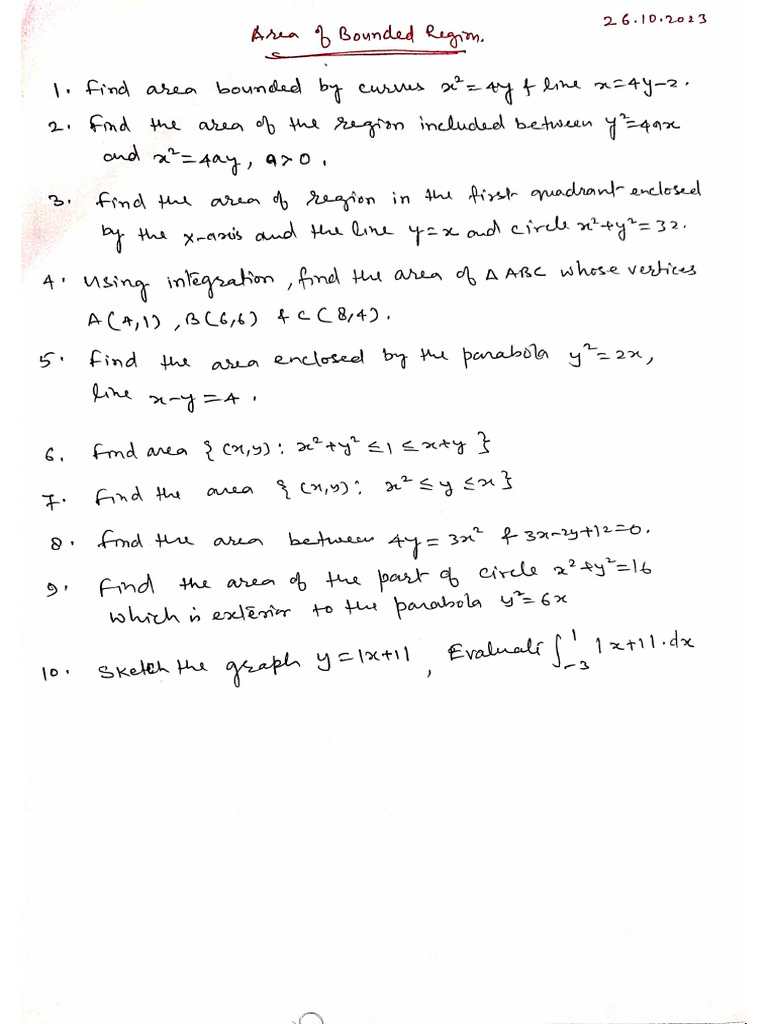 26.10.2023
Area of Bounded Region.
1. Find area bounded by curves x²=4y & line x=4y-2.
2. Find the area of the region included between y²=4ax
and x²=4ay, a>0.
3. Find the area of region in the first quadrant enclosed
by the x-axis and the line y=x and circle x²+y²=32.
4. Using integration, find the area of Δ ABC whose vertices
A(4,1), B(6,6) & C(8,4).
5. Find the area enclosed by the parabola y²=2x,
line x-y=4.
6. Find area {(x,y): x²+y² ≤1 ≤x+y}
7. Find the area {(x,y): x² ≤y ≤x}
8. Find the area between 4y=3x² & 3x-2y+12=0.
9. Find the area of the part of circle x²+y²=16
which is exterior to the parabola y²=6x
10. Sketch the graph y=|x+1|, Evaluate ∫₋₃¹ |x+1|.dx